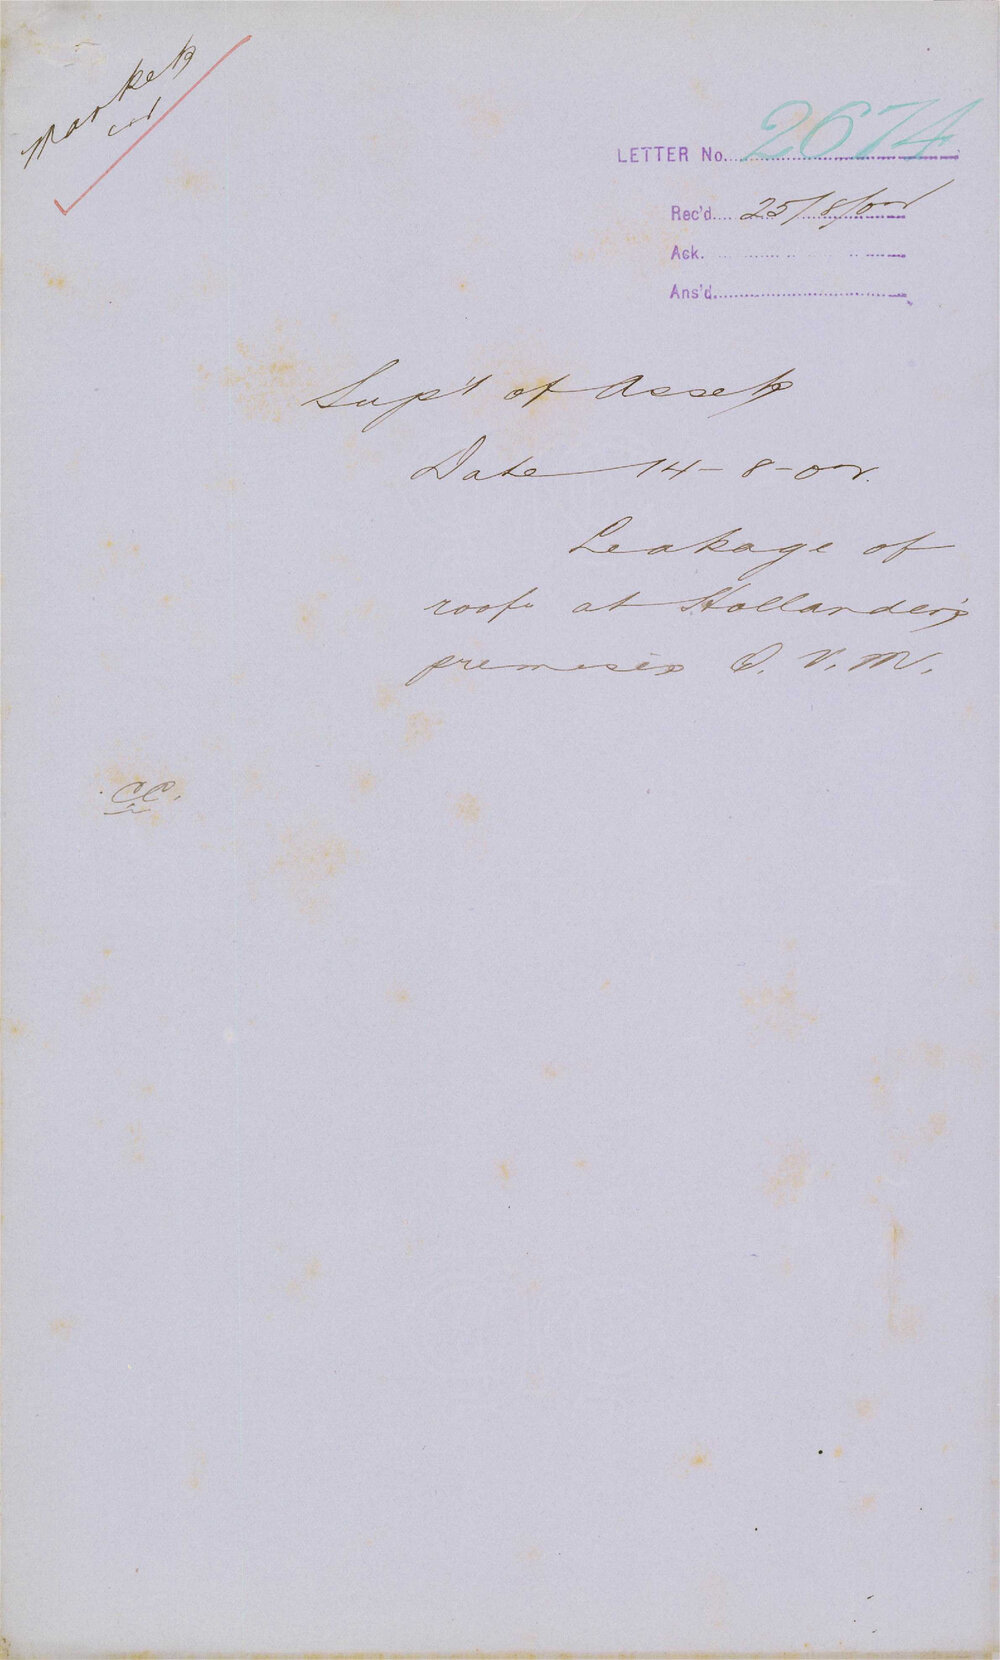 Markets
LETTER No. 2674
Rec'd. 25/8/02
Ack.
Ans'd.
Sup't of Assets
Date 14-8-02.
Leakage of
roof at Hollander's
premises Q. V. M.
CC.